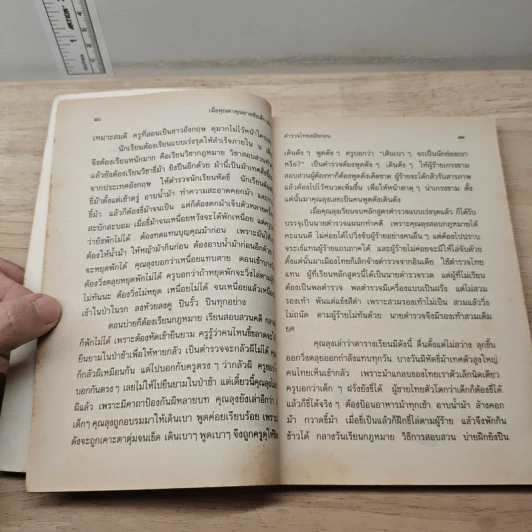 ๑๐
เมื่อคุณตาคุณยายยังเด็ก
เพราะสมดี ครูที่สอนเป็นชาวอังกฤษ ดุมากไม่ไว้หน้าใคร
นักเรียนต้องเรียนแบบเร่งรัดให้สำเร็จภายใน ๖
จึงต้องเรียนหนักมาก คือเรียนวิชากฎหมาย วิชาสอบสวน
แล้วยังต้องเรียนวิชาขี่ม้า ยิงปืนอีกด้วย ม้านี้เป็นม้าเทศ
จากประเทศอังกฤษ ให้ตำรวจนักเรียนหัดขี่ นักเรียนต้อง
ขี่ม้าตั้งแต่เช้าตรู่ อาบน้ำม้า ทำความสะอาดคอกม้า และ
ขี่ม้า แล้วก็ต้องขี่ม้าจนเป็น แต่ก็ต้องตกม้าเจ็บตัวหลายครั้ง
สะบักสะบอม เมื่อขี่ม้าจนเหนื่อยหวังจะได้พักเหนื่อย
ว่ายังพักไม่ได้ ต้องทดแทนบุญคุณม้าก่อน เพราะมัน
ต้องให้น้ำม้า ให้หญ้าม้ากินก่อน ต้องอาบน้ำม้าก่อนอีกด้วย
จะหยุดพักได้ คุณลุงบอกว่าเหนื่อยแทบตาย ตอนเช้า
ต้องวิ่งตลุยหยุดพักไม่ได้ ครูบอกว่าถ้าหยุดพักจะวิ่งไล่
ไม่ทันนะ ต้องวิ่งไม่หยุด เหนื่อยไม่ได้ จนเหนื่อยแล้วเหนื่อย
เข้าในป่าในรก ลงห้วยลงคู ปีนรั้ว ปีนทุกอย่าง
ตอนบ่ายก็ต้องเรียนกฎหมาย เรียนสอบสวนคดี กลางคืน
ก็พักไม่ได้ เพราะต้องหัดเข้ายืนยาม ครูรู้ว่าคนไหนขี้ขลาด
ยืนยามในป่าช้า เพื่อให้หายกลัว เป็นตำรวจจะกลัวผีไม่ได้
ก็กลัวผีเหมือนกัน แต่ไปบอกกับครูตรง ๆ ว่ากลัวผี ครู
บอกกันตรง ๆ เลยไม่ให้ไปยืนยามในป่าช้า แต่เดี๋ยวนี้คุณลุง
ผีแล้ว เพราะมีคาถาป้องกันผีหลายบท คุณลุงยังเล่าอีกว่า
เด็กๆ คุณลุงถูกอบรมมาให้เดินเบา พูดค่อยเรียบร้อย เพราะ
ดังจะถูกเคาะตาตุ่มจนเข็ด เดินเบาๆ พูดเบาๆ จึงถูกครูดุ
ตำรวจไทยสมัยก่อน
๑๑
เดินดัง ๆ พูดดัง ๆ ครูบอกว่า "เดินเบา ๆ จะเป็นนักย่องเบา
หรือ?" เป็นตำรวจต้องพูดดัง ๆ เดินดัง ๆ ให้ผู้ร้ายเกรงขาม
สอบสวนผู้ต้องหาก็ต้องพูดดังเด็ดขาด ผู้ร้ายจะได้กลัวรับสารภาพ
แล้วต้องไปไว้หนวดเพิ่มขึ้น เพื่อให้หน้าตาดุ ๆ น่าเกรงขาม ตั้ง
แต่นั้นมาคุณลุงเลยเป็นคนพูดดังเดินดัง
เมื่อคุณลุงเรียนจบหลักสูตรตำรวจแบบเร่งรุดแล้ว ก็ได้รับ
บรรจุเป็นนายตำรวจแผนกทำคดี เพราะคุณลุงสอบกฎหมายได้
คะแนนดี ไม่ค่อยได้ไปวิ่งจับผู้ร้ายอย่างคนอื่น ๆ แต่ต้องไปปราบ
จระเข้แทนผู้ร้ายแถบภาคใต้ และผู้ร้ายไม่ค่อยจะมีให้ไล่จับด้วย
ตั้งแต่นั้นมาเมืองไทยก็เลิกจ้างตำรวจจากอินเดีย ใช้ตำรวจไทย
แทน ผู้ที่เรียนหลักสูตรนี้ได้เป็นนายตำรวจรวด แต่ผู้ที่ไม่เรียน
ต้องเป็นพลตำรวจ พลตำรวจมีเครื่องแบบเป็นฝรั่ง แต่ไม่สวม
รองเท้า พันแต่แข้งสีดำ เพราะสวมรองเท้าไม่เป็น สวมแล้ววิ่ง
ไม่ถนัด ตามผู้ร้ายไม่ทันด้วย นายตำรวจจึงมีรองเท้าสวมเต็ม
ยศ
คุณลุงเล่าว่าตารางเรียนมีดังนี้ ตื่นตั้งแต่ไม่สว่าง ลุกขึ้น
ออกวิ่งตลุยออกกำลังแทบทุกวัน บางวันมีหัดขี่ม้าเทศตัวสูงใหญ่
คนไทยเห็นเข้าก็กลัว เพราะม้าแกลบของไทยเราตัวเล็กนิดเดียว
ครูบอกว่าเด็ก ๆ ฝรั่งยังขี่ได้ ผู้ชายไทยตัวโตกว่าเด็กก็ต้องขี่ได้
แล้วก็ขี่ได้จริง ๆ ต้องป้อนอาหารม้าทุกเช้า อาบน้ำม้า ล้างคอก
ม้า กวาดขี้ม้า เมื่อขี่เป็นแล้วก็ฝึกขี่ไล่ตามผู้ร้าย แล้วจึงพักกิน
ข้าวได้ กลางวันเรียนกฎหมาย วิธีการสอบสวน บ่ายฝึกยิงปืน